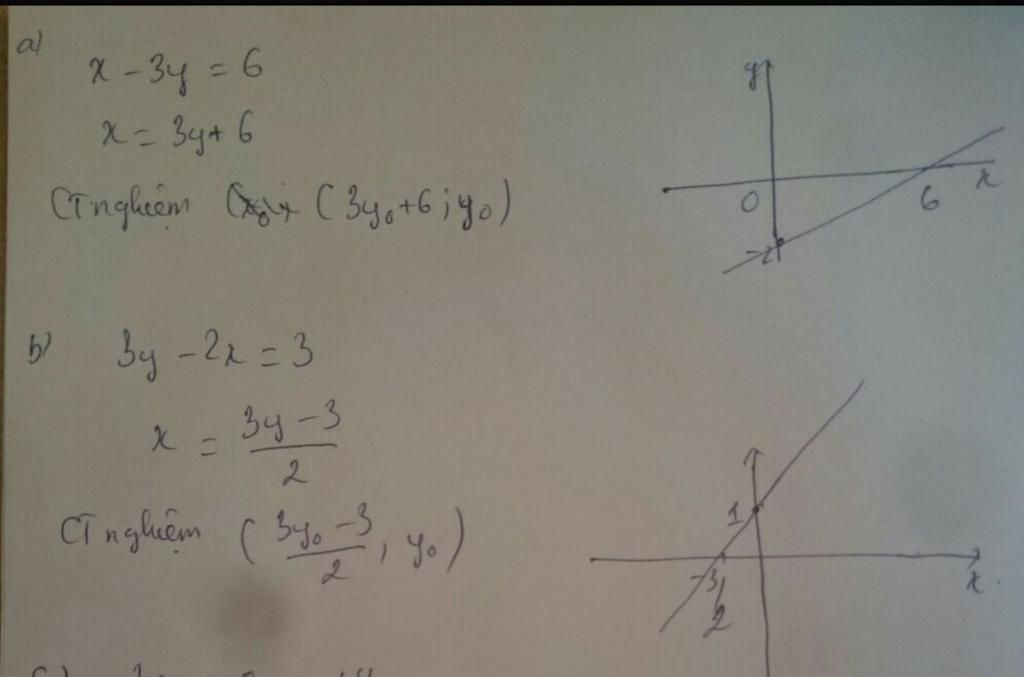 a)
x - 3y = 6
x = 3y + 6
CT nghiệm (3y₀+6; y₀)
y
O
6
x
-2
b)
3y - 2x = 3
x = (3y - 3)/2
CT nghiệm ((3y₀ - 3)/2, y₀)
1
-3/2
x